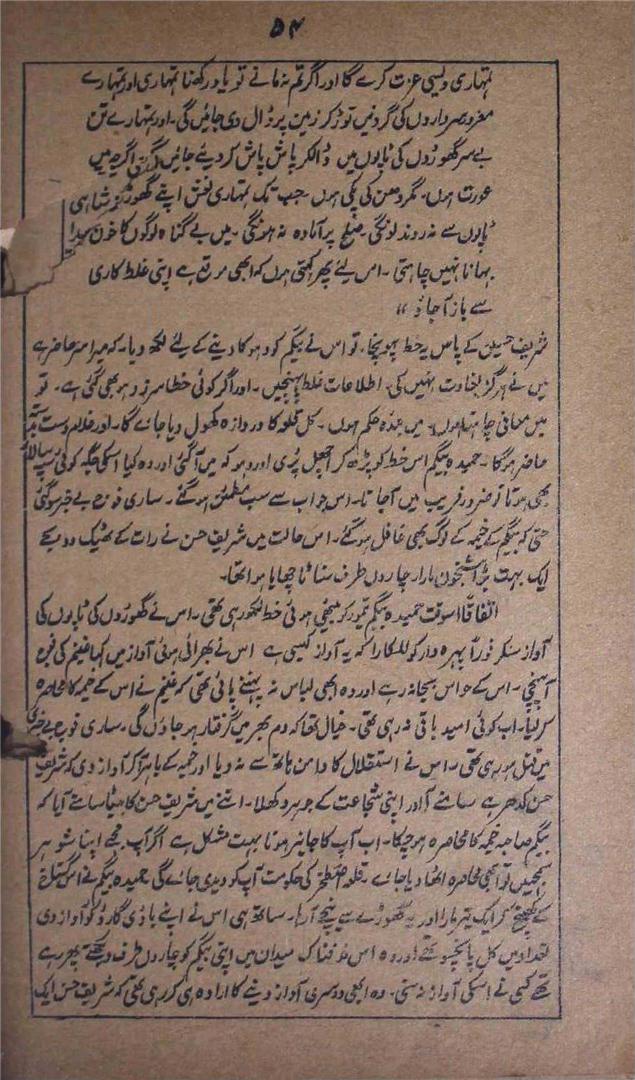 ۵۴
تمہاری ویسی عزت کرے گا اور اگر تم نہ مانے تو یاد رکھنا تمہاری اور تمہارے
مغرور سرداروں کی گردنیں توڑ کر زمین پر ڈال دی جائیں گی۔ اور تمہارے تن
بے سر گھوڑوں کی ٹاپوں میں ڈالکر پاش پاش کر دیئے جائیں گے۔ اگرچہ میں
عورت ہوں۔ مگر دھن کی پکی ہوں۔ جب تک تمہاری نعش اپنے گھوڑوں
ٹاپوں سے نہ روند لونگی۔ صلح پر آمادہ نہ ہونگی۔ میں بے گناہ لوگوں کا خون
بہانا نہیں چاہتی۔ اس لئے پھر کہتی ہوں کہ ابھی موقع ہے اپنی غلط کاری
سے باز آجاؤ ،،
شریف حسین کے پاس یہ خط پہونچا۔ تو اس نے بیگم کو دھوکا دینے کے لئے لکھ دیا۔ کہ میرا سر حاضر ہے
میں نے ہرگز بغاوت نہیں کی۔ اطلاعات غلط پہنچیں۔ اور اگر کوئی خطا سرزد ہو بھی گئی ہے۔ تو
میں معافی چاہتا ہوں۔ میں بندہ حکم ہوں۔ کل قلعہ کا دروازہ کھول دیا جائے گا۔ اور غلام دست بستہ
حاضر ہوگا۔ حمیدہ بیگم اس خط کو پڑھ کر اچھل پڑی اور دھوکہ میں آگئی اور وہ کیا اسکی جگہ کوئی سپہ سالار
بھی ہوتا تو ضرور فریب میں آجاتا۔ اس جواب سے سب مطمئن ہو گئے۔ ساری فوج بے خبر سو گئی
حتی کہ بیگم کے خیمہ کے لوگ بھی غافل ہو گئے۔ اس حالت میں شریف حسن نے رات کے ٹھیک دو بجے
ایک بہت بڑا شبخون مارا۔ چاروں طرف سناٹا چھایا ہوا تھا۔
اتفاقًا اسوقت حمیدہ بیگم تیمور کو بیٹھی ہوئی خط لکھ رہی تھی۔ اس نے گھوڑوں کی ٹاپوں کی
آواز سنکر فوراً پہرہ دار کو للکارا کہ یہ آواز کیسی ہے اس نے بھرائی ہوئی آواز میں کہا غنیم کی فوج
آپہنچی۔ اس کے حواس بجا نہ رہے اور وہ ابھی لباس نہ پہننے پائی تھی کہ غنیم نے اس کے خیمہ کا محاصرہ
کر لیا۔ اب کوئی امید باقی نہ رہی تھی۔ خیال تھا کہ دم بھر میں گرفتار ہو جاؤں گی۔ ساری فوج بے خبری
میں قتل ہو رہی تھی۔ اس نے استقلال کا دامن ہاتھ سے نہ دیا اور خیمہ کے باہر آکر آواز دی کہ شریف
حسن کدھر ہے سامنے آ اور اپنی شجاعت کے جوہر دکھلا۔ اتنے میں شریف حسن کا بیٹا سامنے آیا کہ
بیگم صاحبہ خیمہ کا محاصرہ ہو چکا۔ اب آپ کا جانبر ہونا بہت مشکل ہے اگر آپ مجھے اپنا شوہر
سمجھیں تو ابھی محاصرہ اٹھا دیا جائے۔ قلعہ اصطخر کی حکومت آپ کو دیدی جائے گی حمیدہ بیگم نے اس گستاخ
کے کھینچ کر ایک تیر مارا اور یہ گھوڑے سے نیچے آ رہا۔ ساتھ ہی اس نے اپنے باڈی گارڈ کو آواز دی
تعداد میں کل پانچسو تھے اور وہ اس خوفناک میدان میں اپنی بیگم کو چاروں طرف دیکھتے پھر رہے
تھے کسی نے اسکی آواز نہ سنی۔ وہ ابھی دوسری آواز دینے کا ارادہ ہی کر رہی تھی کہ شریف حسن ایک